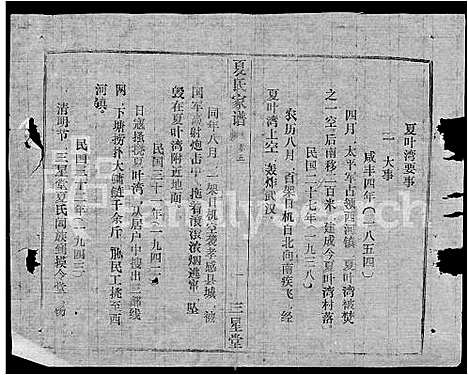 夏叶湾要事
一 大事
咸丰四年（一八五四）
四月，太平军占领西河镇，夏叶湾被焚
之一空，后南移一百米，建成今夏叶湾村落。
民国二十七年（一九三八）
农历八月，百架日机自北向南疾飞，经
夏叶湾上空，轰炸武汉。
夏氏家谱
卷三
一
三星堂
同年八月，一架日机空袭孝感县城，被
国军高射炮击中，拖着滚滚浓烟逃窜，坠
毁在夏叶湾附近地面。
民国三十一年（一九四二）
日寇扫荡夏叶湾，从居户中搜出三部线
网，下塘捞扑大鲢鱼千余斤，勒民工挑至西
河镇。
民国三十二年（一九四三）
清明节，三星堂夏氏阖族到摸令堂，
familysearch